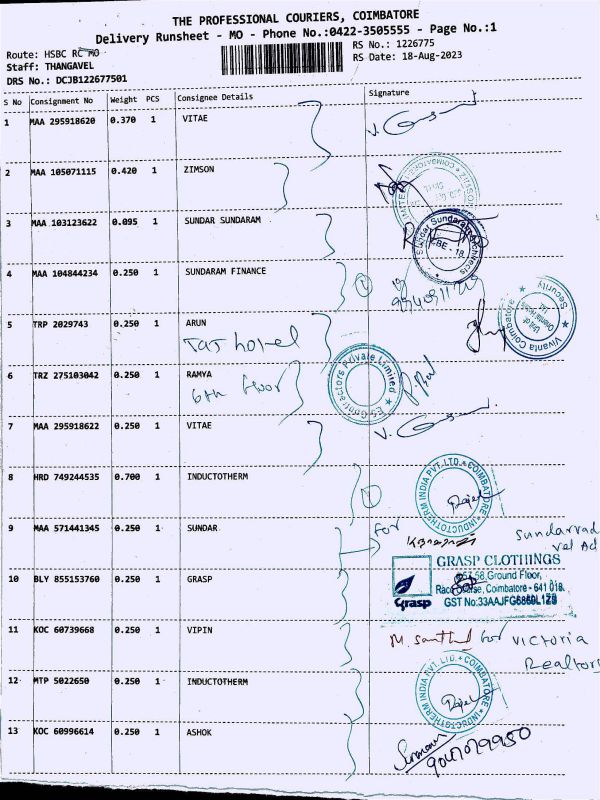 THE PROFESSIONAL COURIERS, COIMBATORE
Delivery Runsheet - MO - Phone No.:0422-3505555 - Page No.:1
Route: HSBC RC MO
RS No.: 1226775
Staff: THANGAVEL
RS Date: 18-Aug-2023
DRS No.: DCJB122677501
S No Consignment No Weight PCS Consignee Details Signature
1 MAA 295918620 0.370 1 VITAE
2 MAA 105071115 0.420 1 ZIMSON
3 MAA 103123622 0.095 1 SUNDAR SUNDARAM
Sundar Sundaram Architects
CBE - 18
4 MAA 104844234 0.250 1 SUNDARAM FINANCE
5 TRP 2029743 0.250 1 ARUN
Taj hotel
Vivanta Coimbatore
Security
6 TRZ 275103042 0.250 1 RAMYA
6th floor
Contractors Private Limited
7 MAA 295918622 0.250 1 VITAE
8 HRD 749244535 0.700 1 INDUCTOTHERM
INDUCTOTHERM INDIA PVT. LTD. COIMBATORE
9 MAA 571441345 0.250 1 SUNDAR
for
10 BLY 855153760 0.250 1 GRASP
GRASP CLOTHINGS
Ground Floor,
Race Course, Coimbatore - 641 018.
Grasp
11 KOC 60739668 0.250 1 VIPIN
for Victoria
Realtors
12 MTP 5022650 0.250 1 INDUCTOTHERM
INDUCTOTHERM INDIA PVT. LTD. COIMBATORE
13 KOC 60996614 0.250 1 ASHOK